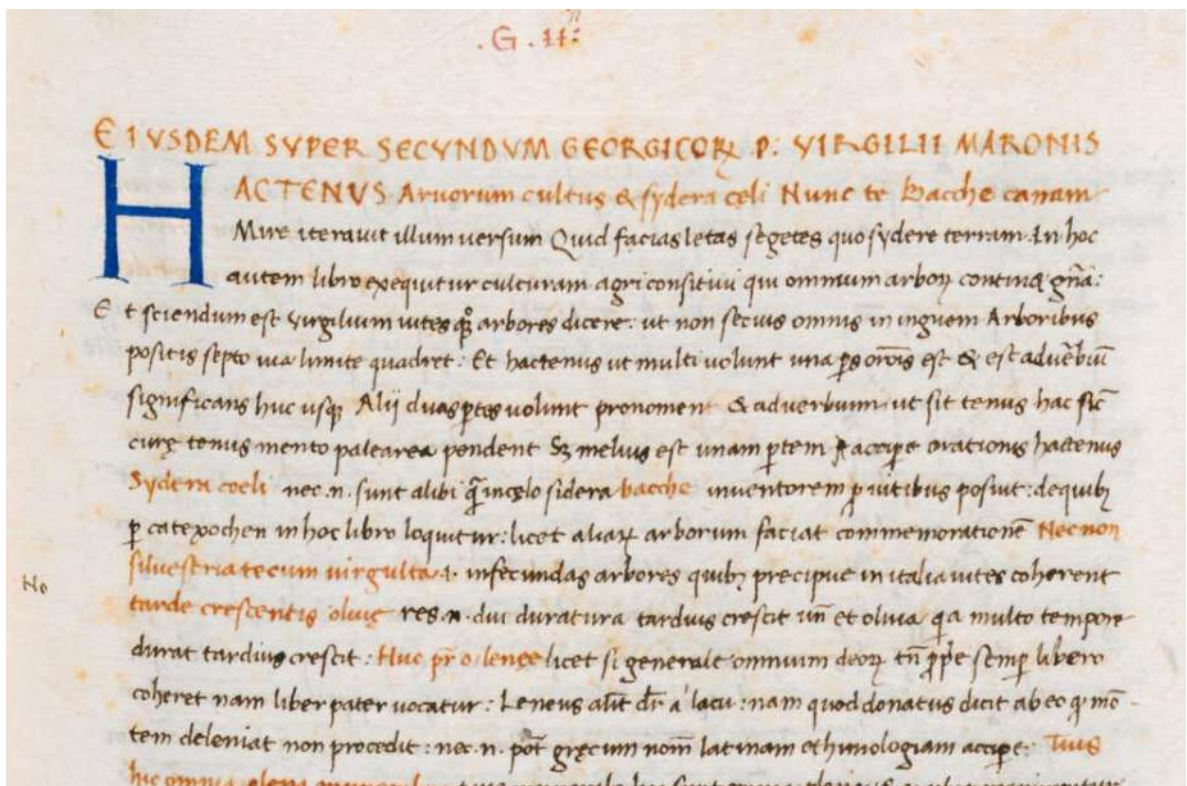 .G.II:
EIVSDEM SVPER SECVNDVM GEORGICORꝜ P: VIRGILII MARONIS
HACTENVS Aruorum cultus & sydera cęli Nunc te Bacche canam
Mire iterauit illum uersum Quid facias letas segetes quo sydere terram. In hoc
autem libro exequitur culturam agri consitiui qui omnium arboꝝ continet gn̄a:
Et sciendum est Virgilium uites quoqꝫ arbores dicere: ut non secius omnis in inguem Arboribus
positis secto uia limite quadret: Et hactenus ut multi uolunt una ꝑs orōis est & est aduerbiū
significans huc usqꝫ Alij duas ꝑtes uolunt pronomen & aduerbium ut sit tenus hac sic̄
curę tenus mento palearea pendent Sꝫ melius est unam ꝑtem accipe orationis hactenus
Sydera coeli nec .n. sunt alibi q̄ in cęlo sidera bacche inuentorem ꝓ uitibus posiut: de quibꝫ
ꝑ catexochen in hoc libro loquitur: licet aliaꝝ arborum faciat commemorationē Nec non
siluestria tecum uirgulta .i. infecundas arbores quibꝫ precipue in italia uites coherent
No
tarde crescentis oliuę res .n. diu duratura tardius crescit un̄ et oliua qa multo tempore
durat tardius crescit: Huc pr̄ o lenęe licet si generale omnium deoꝝ tn̄ ꝓpe semꝑ libero
coheret nam liber pater uocatur: Leneus aūt dr̄ a lacu: nam quod donatus dicit ab eo qꝫ mē
tem deleniat non procedit: nec .n. pōt gręcum nom̄ latinam ethimologiam accipe: Tuis
hic omnia plena muneribus